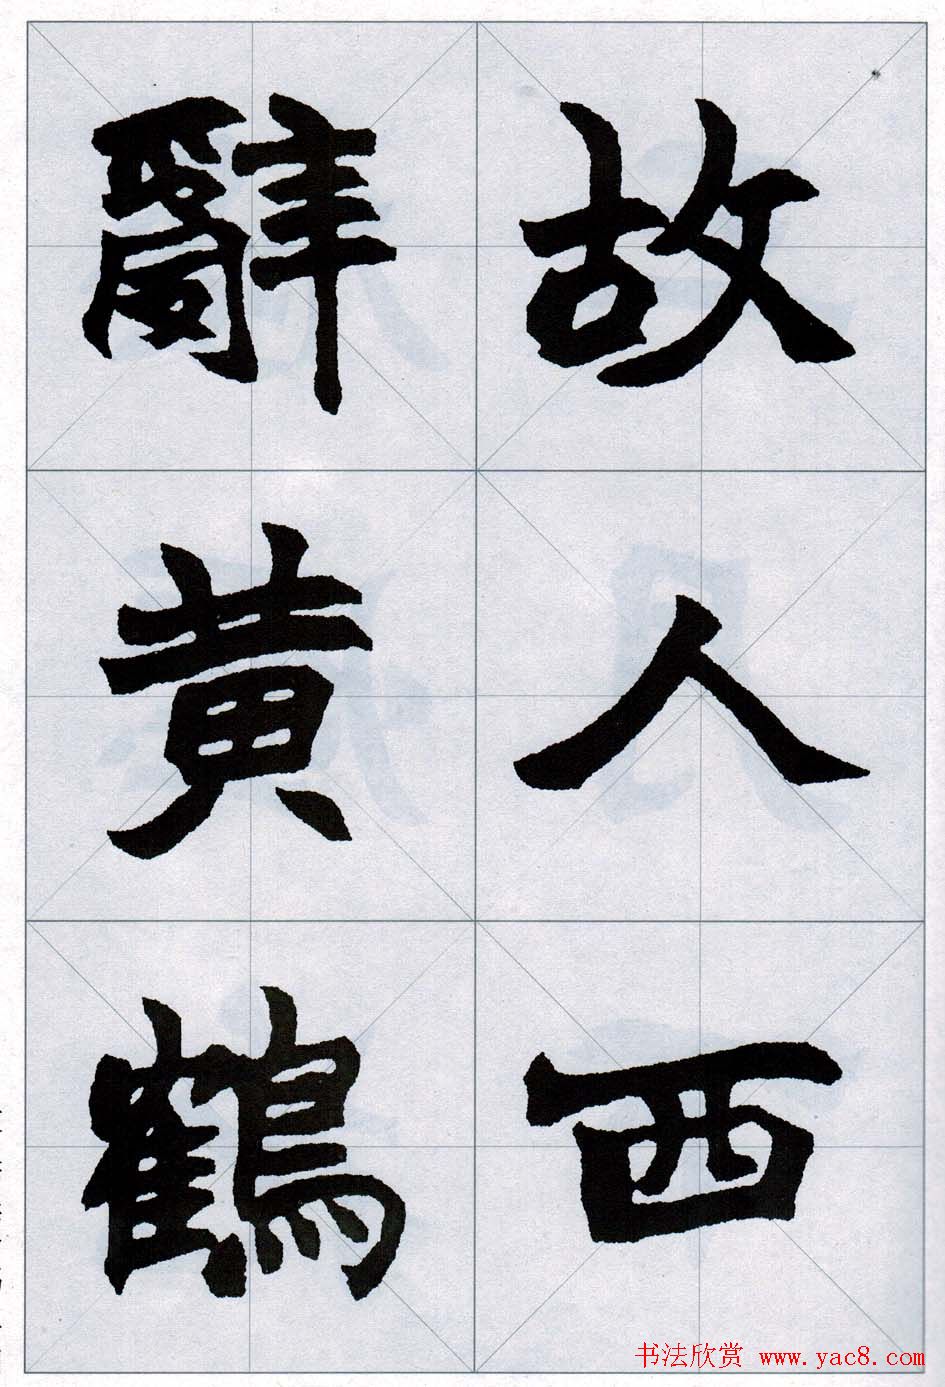 故人西
辭黄鶴
书法欣赏 www.yac8.com